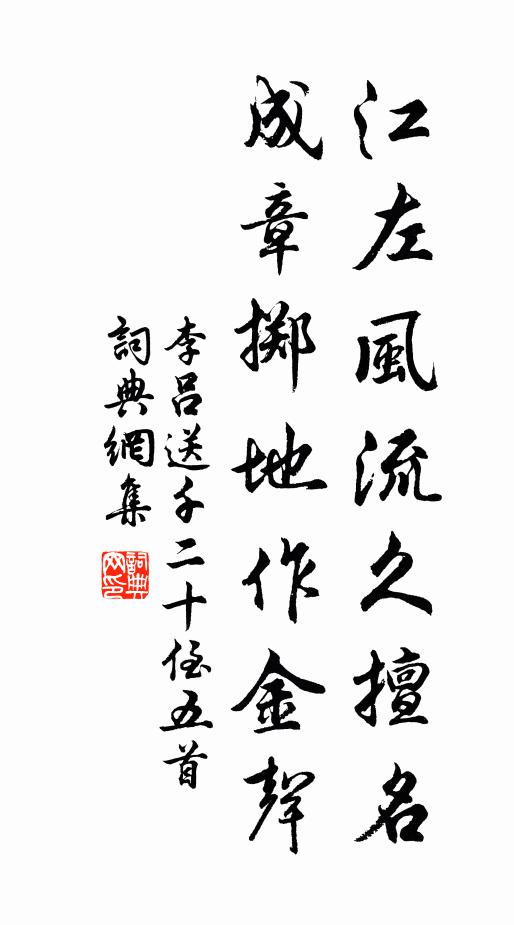 江左風流久擅名
成章擲地作金聲
李呂送千二十侄五首
詞典網集
詞典网印